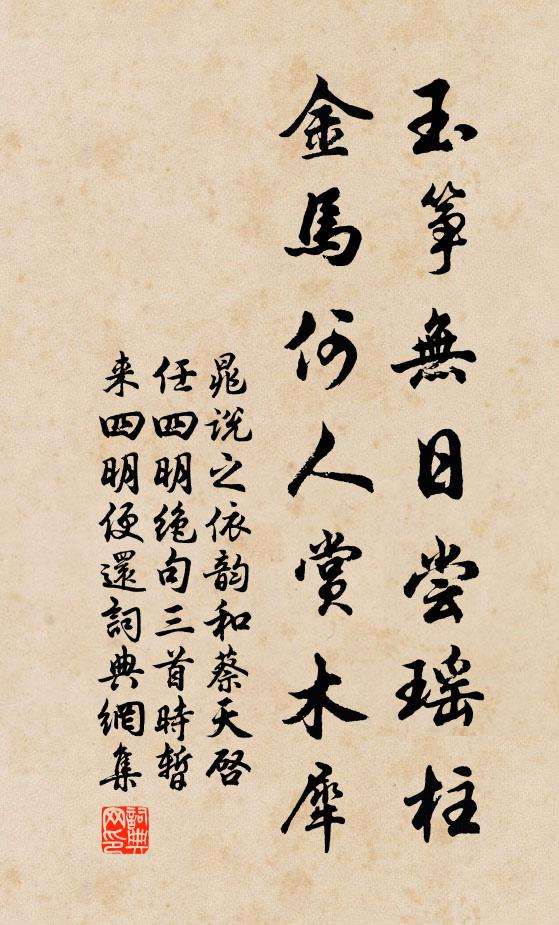 玉筝無日尝瑶柱
金馬何人賞木犀
晁说之依韵和蔡天启
任四明绝句三首時暂
来四明便還詞典網集
詞典
网印